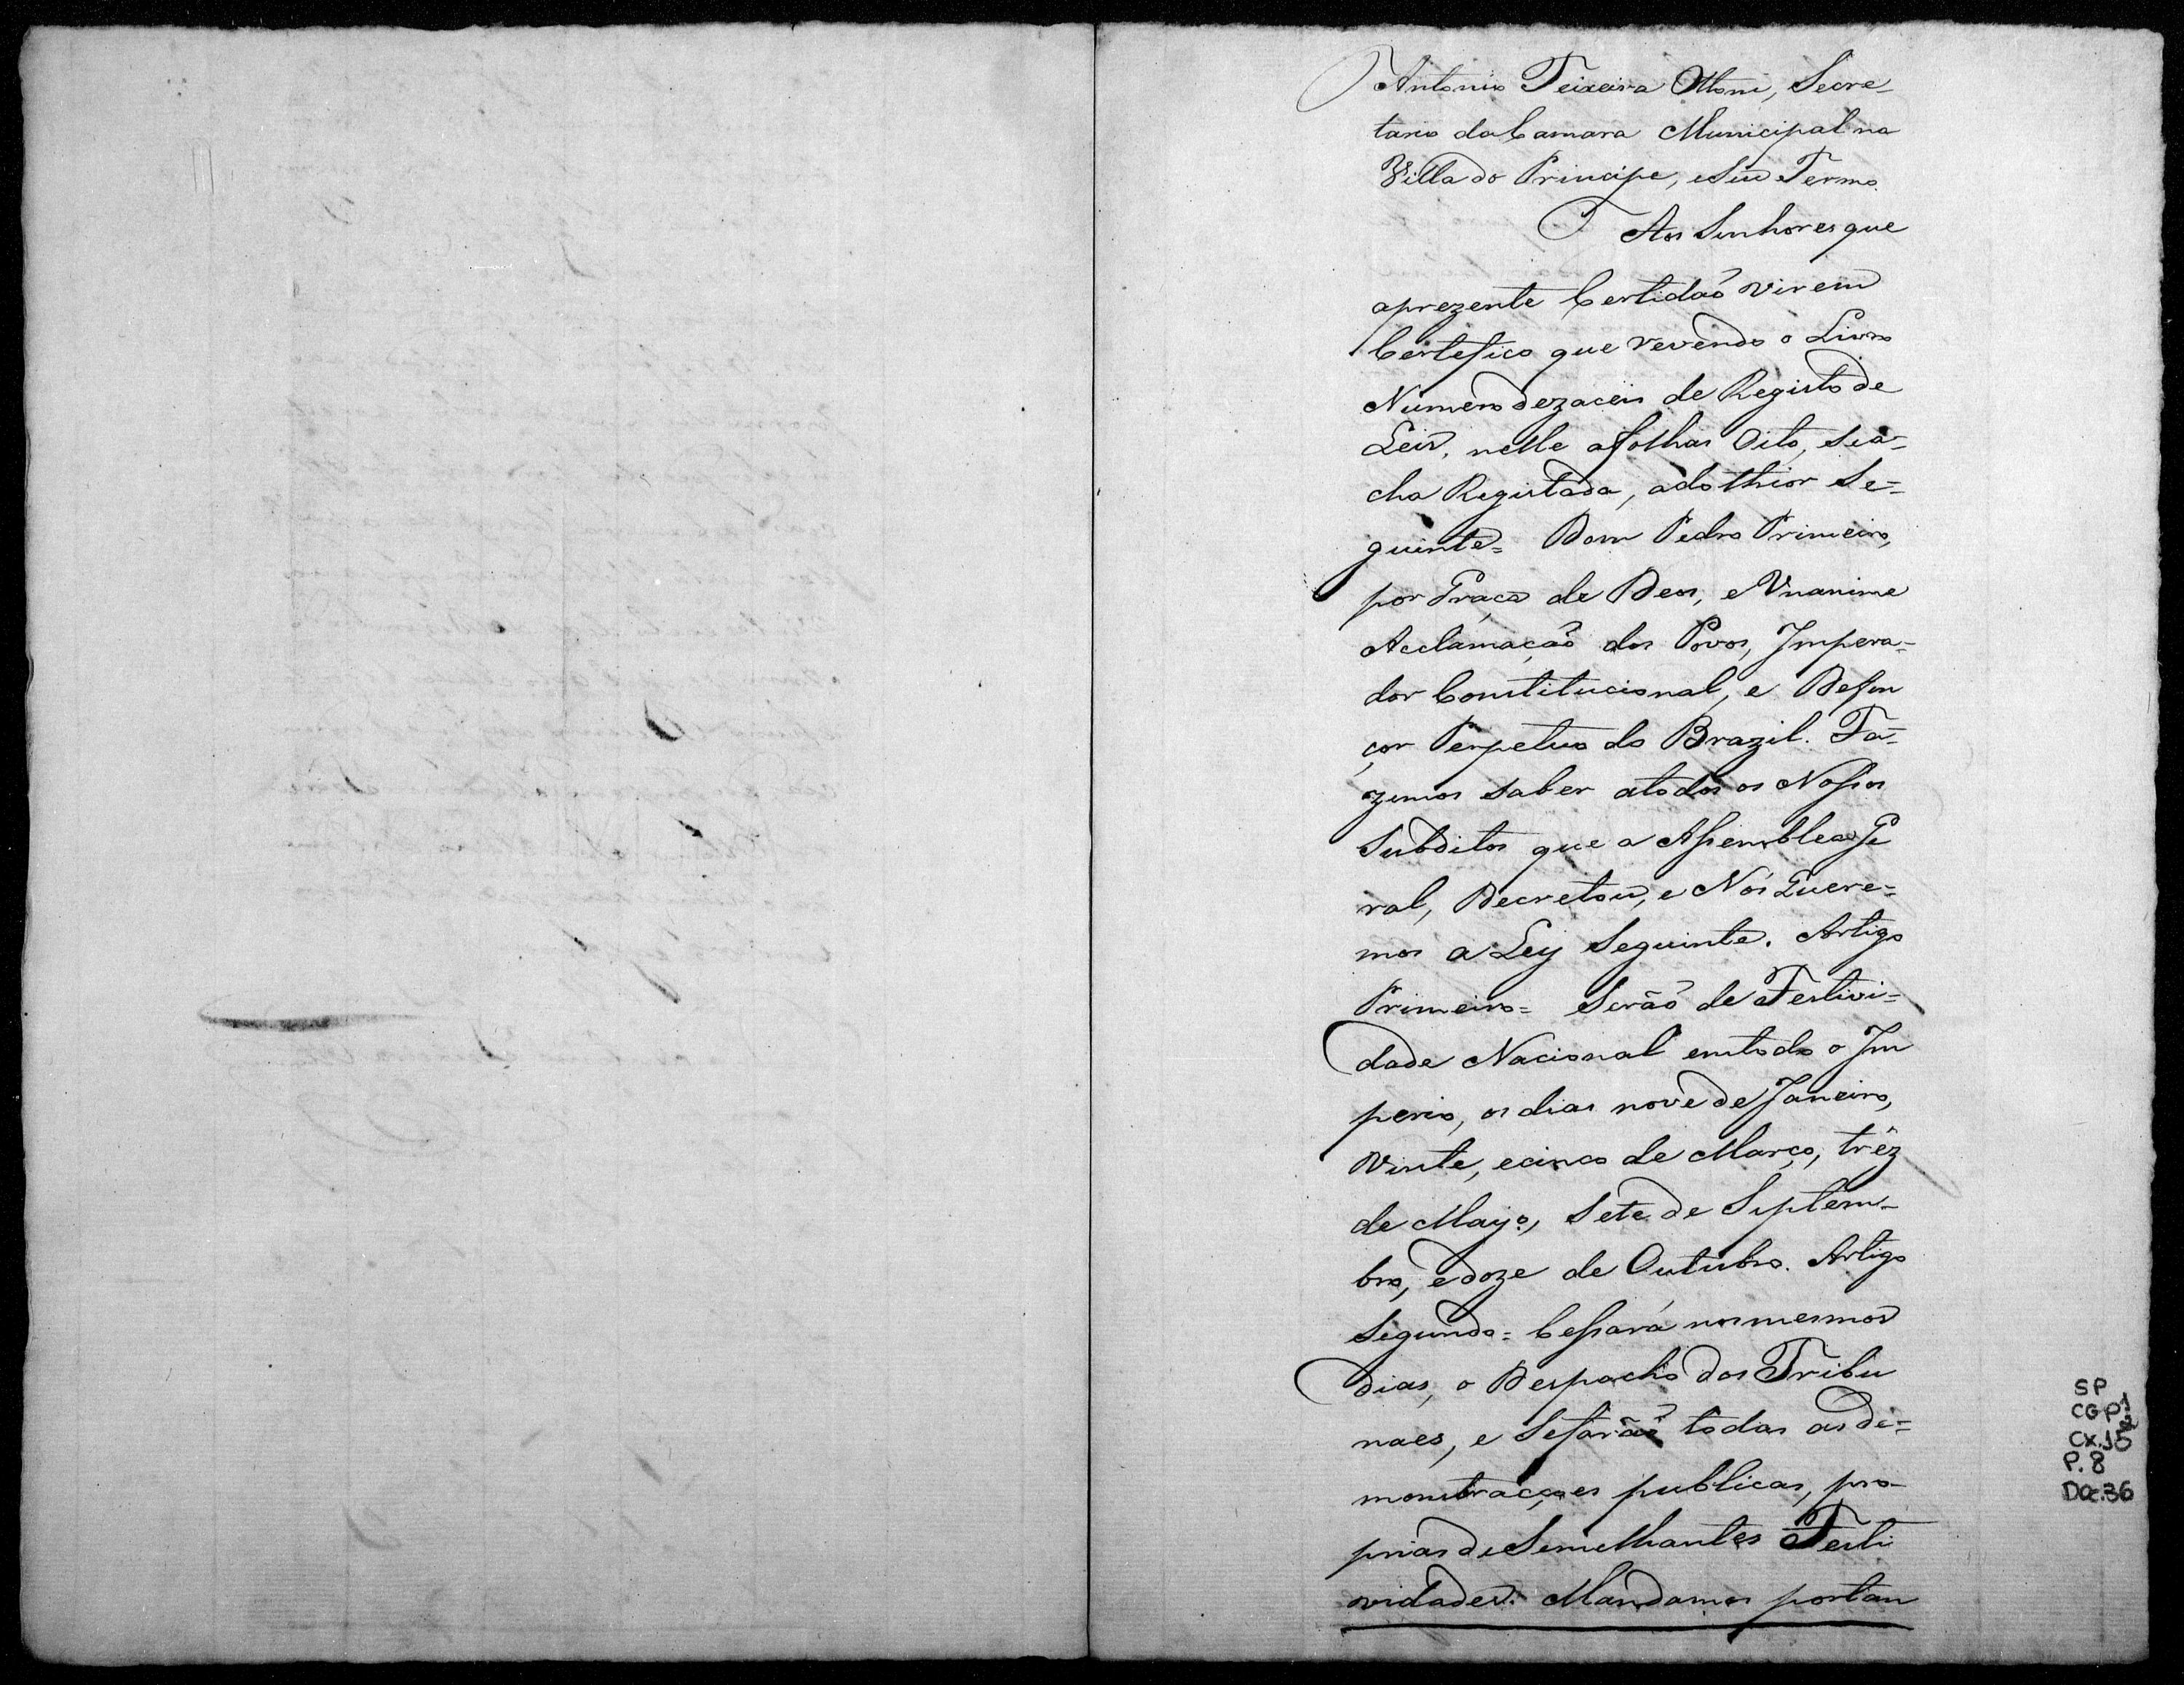 Antonio Teixeira Ottoni, Secre-
tario da Camara Municipal na
Villa do Principe, e Seu Termo.
Aos Senhores que
aprezente Certidaõ virem
Certefico que revendo o Livro
Numero dezaceis de Registo de
Leis, nelle afolhas Oito, sea-
cha Registada, ado thior Se=
guinte= Dom Pedro Primeiro,
por Graça de Deos, e Vnanime
Acclamaçaõ dos Povos, Impera=
dor Constitucional, e Defen
çor Perpetuo do Brazil. Fa=
zemos saber atodos os Nossos
Subditos que a Assemblea Ge
ral, Decretou, e Nós Quere=
mos a Ley Seguinte. Artigo
Primeiro= Serão de Festivi=
dade Nacional emtodo o Im
perio, os dias nove de Janeiro,
Vinte, ecinco de Março, trêz
de Mayo, Sete de Septem-
bro, edoze de Outubro. Artigo
Segundo= Cessará nos mesmos
dias, o Despacho dos Tribu
naes, e Sefarão todas as de=
monstracções publicas, pro-
prias de Semelhantes Festi
vidades. Mandamos portan
SP
CGP1
Cx.15
P.8
Doc.36